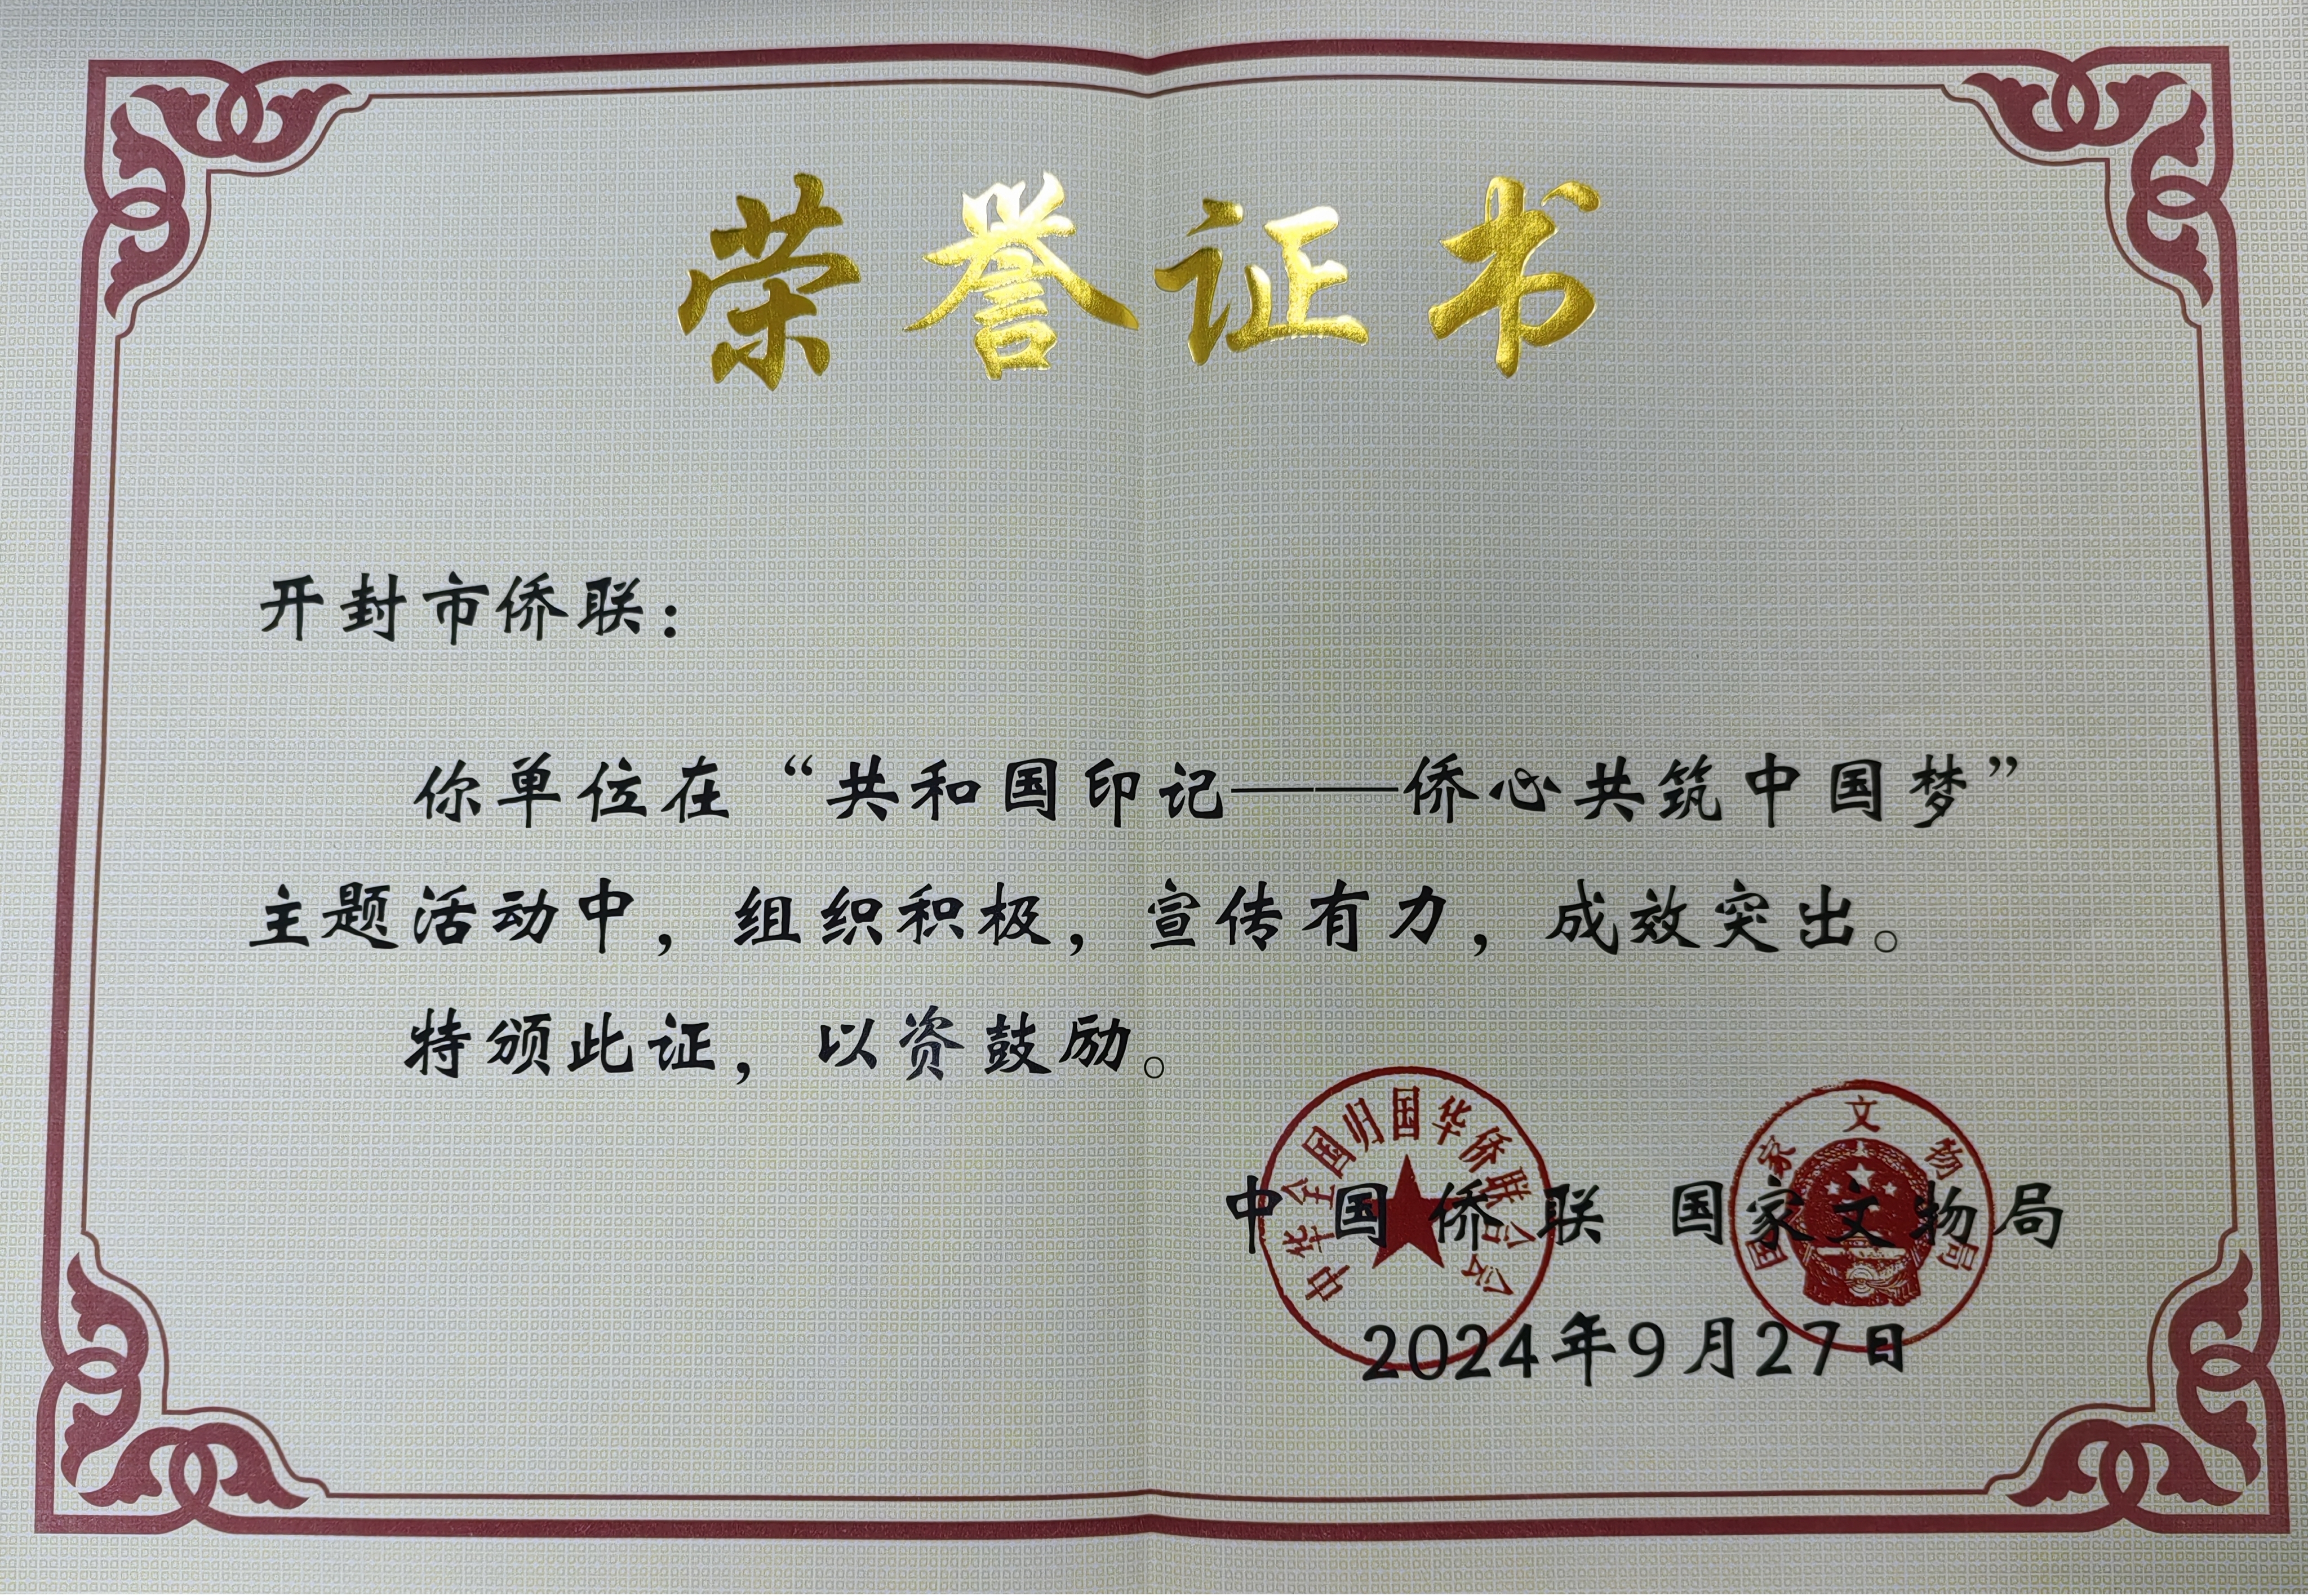 荣誉证书
开封市侨联：
你单位在“共和国印记——侨心共筑中国梦”
主题活动中，组织积极，宣传有力，成效突出。
特颁此证，以资鼓励。
中华全国归国华侨联合会
国家文物局
中国侨联 国家文物局
2024年9月27日